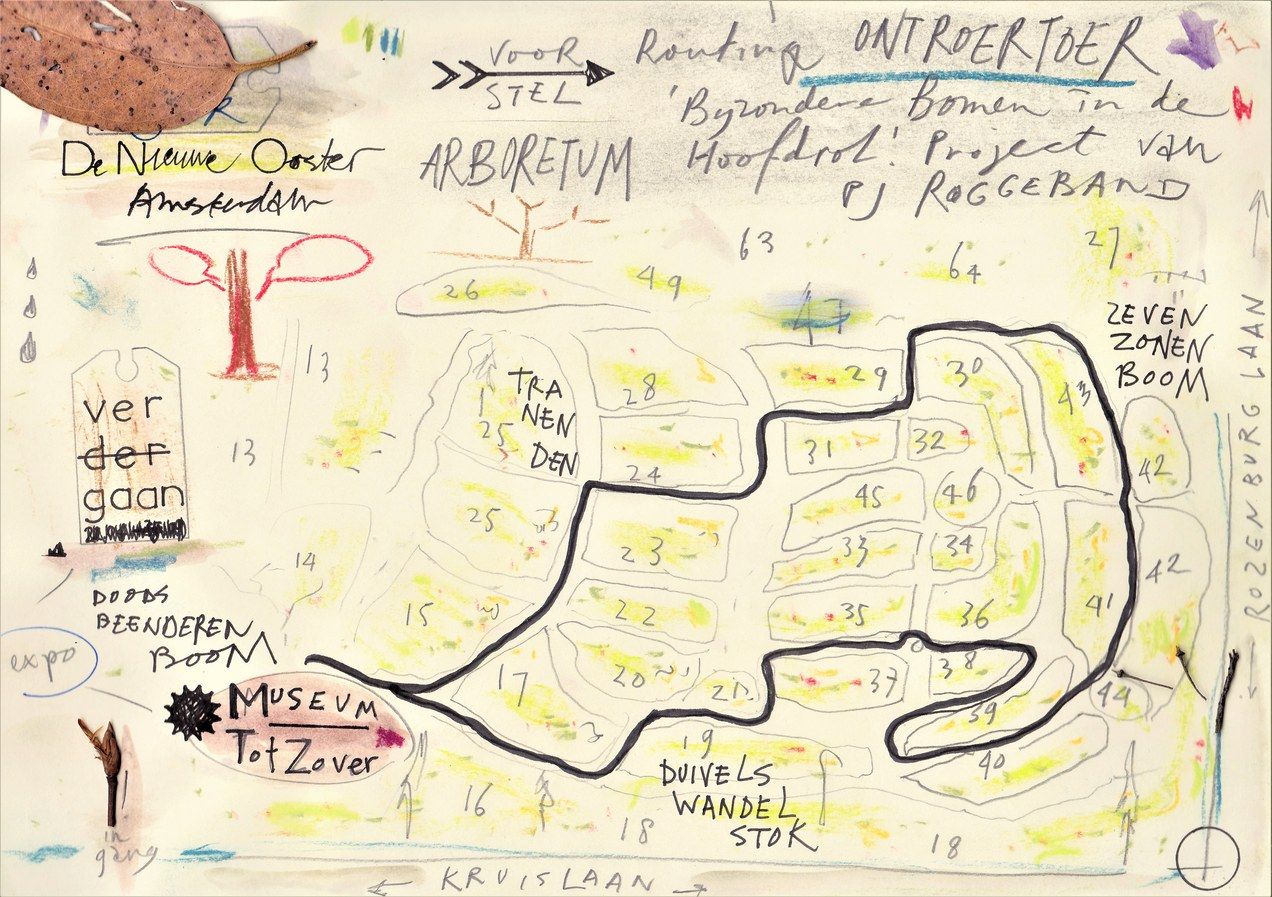 VOOR
STEL
Routing ONTROERTOER
'Byzondere Bomen in de
Hoofdrol'. Project van
PJ ROGGEBAND
De Nieuwe Ooster
Amsterdam
ARBORETUM
63
64
27
26
49
47
ZEVEN
ZONEN
BOOM
ROZENBURG LAAN
13
13
ver
der
gaan
TRA
NEN
DEN
25
28
29
30
43
24
31
32
42
45
46
25
23
33
34
14
15
22
35
36
41
42
DOODS
BEENDEREN
BOOM
expo
MUSEUM
Tot Zover
17
20
21
37
38
39
44
40
19
DUIVELS
WANDEL
STOK
16
18
18
in
gang
KRUISLAAN